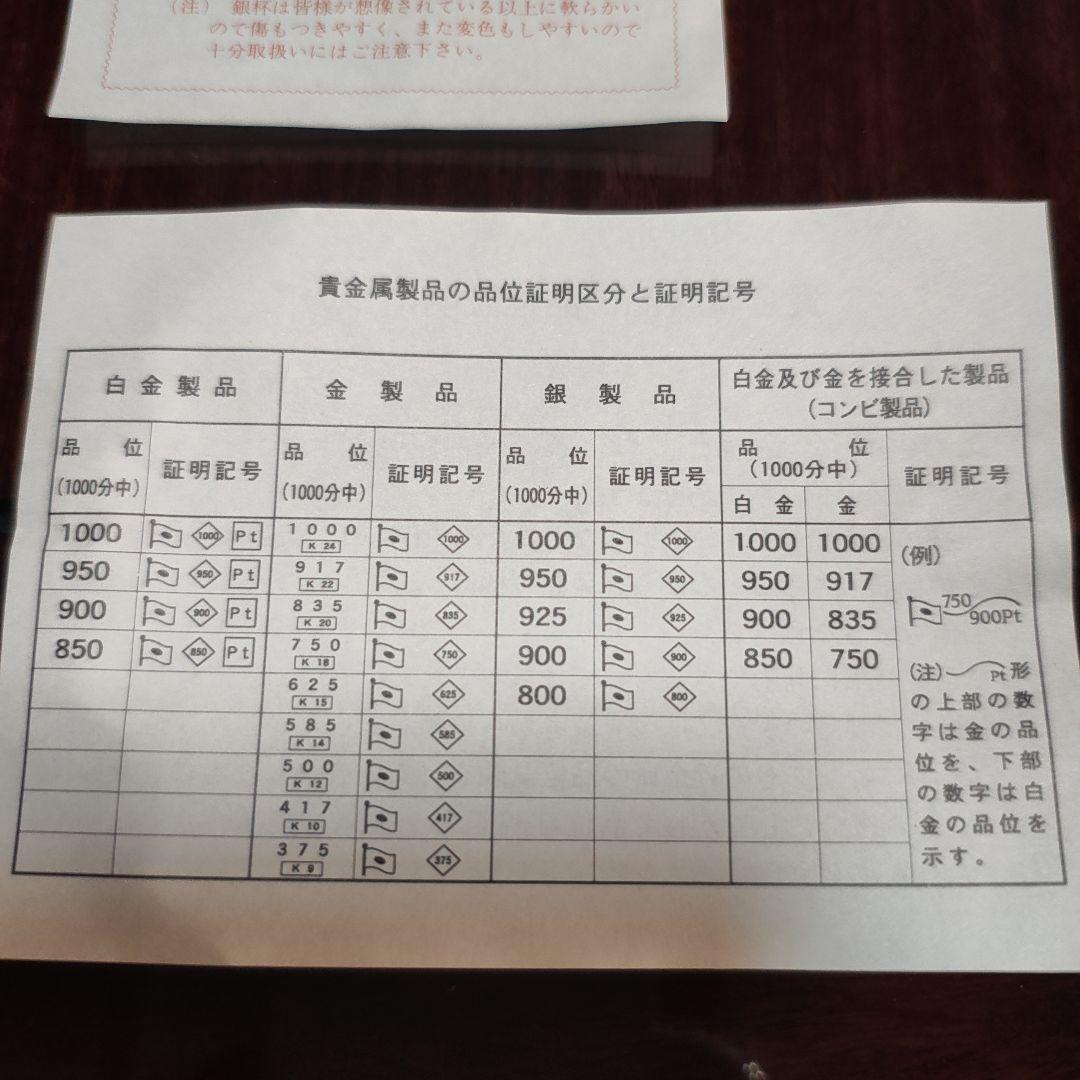 （注） 銀杯は皆様が想像されている以上に軟らかい
ので傷もつきやすく、また変色もしやすいので
十分取扱いにはご注意下さい。
貴金属製品の品位証明区分と証明記号
白金製品 金製品 銀製品 白金及び金を接合した製品
(コンビ製品)
品位 証明記号 品位 証明記号 品位 証明記号 品位 証明記号
(1000分中) (1000分中) (1000分中) (1000分中)
白金 金
1000 1000 Pt 1000 1000 1000 1000 1000 1000 (例)
K 24
950 950 Pt 917 917 950 950 950 917
K 22
900 900 Pt 835 835 925 925 900 835 750
K 20 900Pt
850 850 Pt 750 750 900 900 850 750
K 18
625 625 800 800 (注) Pt形
K 15 の上部の数
585 585 字は金の品
K 14
500 500 位を、下部
K 12 の数字は白
417 417 金の品位を
K 10
375 375 示す。
K 9